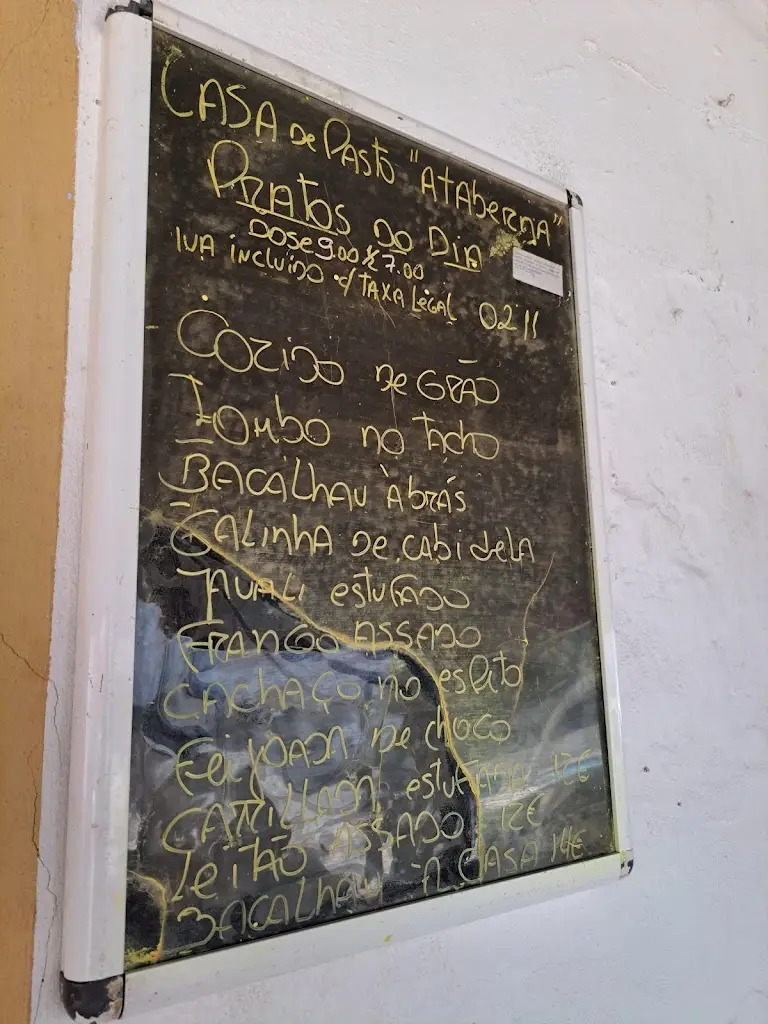 CASA de PASTO "ATABERNA"
PRATOS DO DIA
DOSE 9.00 ½ 7.00
IVA INCLUIDO c/ TAXA LEGAL 02 11
COZIDO DE GRÃO
LOMBO NO TACHO
BACALHAU À BRÁS
GALINHA DE CABIDELA
JAVALI ESTUFADO
FRANGO ASSADO
CACHAÇO NO ESPETO
FEIJOADA DE CHOCO
ESTUFADA 12€
LEITÃO ASSADO 12€
BACALHAU À CASA 14€